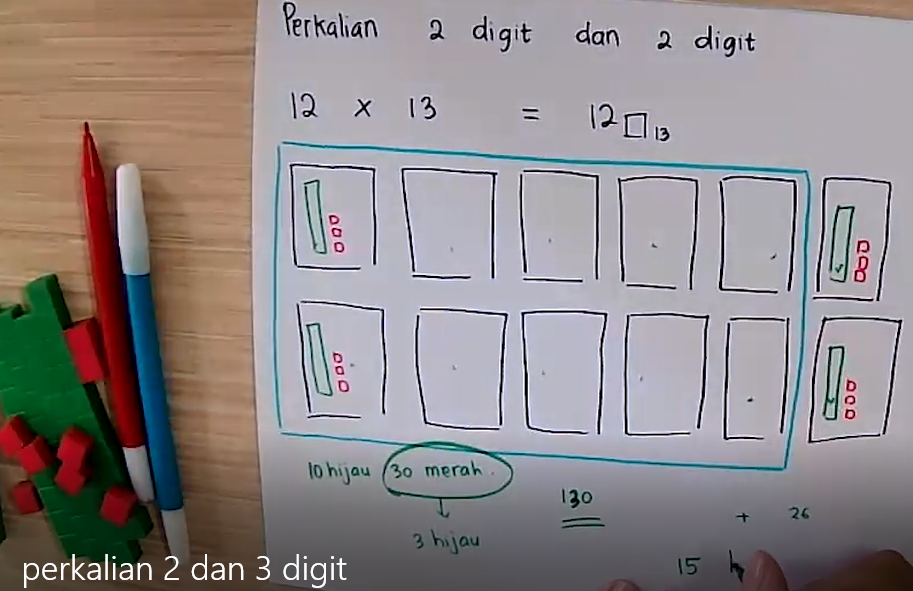 Perkalian 2 digit dan 2 digit
12 x 13 = 12 □ 13
10 hijau 30 merah.
130
+ 26
3 hijau
15 h
perkalian 2 dan 3 digit